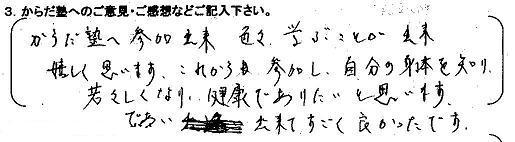 3. からだ塾へのご意見・ご感想などご記入下さい。
からだ塾へ参加出来 色々学ぶことが出来
嬉しく思います。これからも参加し、自分の身体を知り、
若々しくなり、健康でありたいと思います。
であい 出来てすごく良かったです。